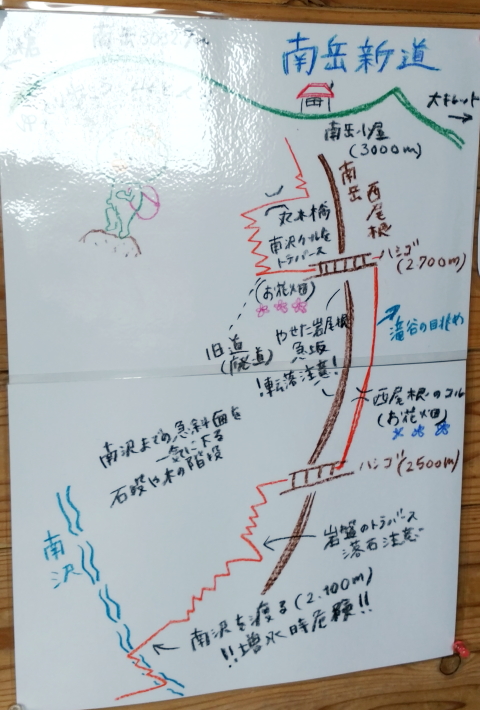 南岳新道
大キレット
南岳小屋
(3000m)
南岳
西尾根
丸木橋
南沢カールを
トラバース
ハシゴ
(2.700m)
(お花畑)
滝谷の眺め
旧道
(廃道)
やせた岩尾根
急坂
!転落注意!
西尾根のコル
(お花畑)
ハシゴ(2500m)
南沢までの急斜面を
一気に下る
石段や木の階段
南沢
岩盤のトラバース
落石注意
南沢を渡る(2.100m)
!!増水時危険!!